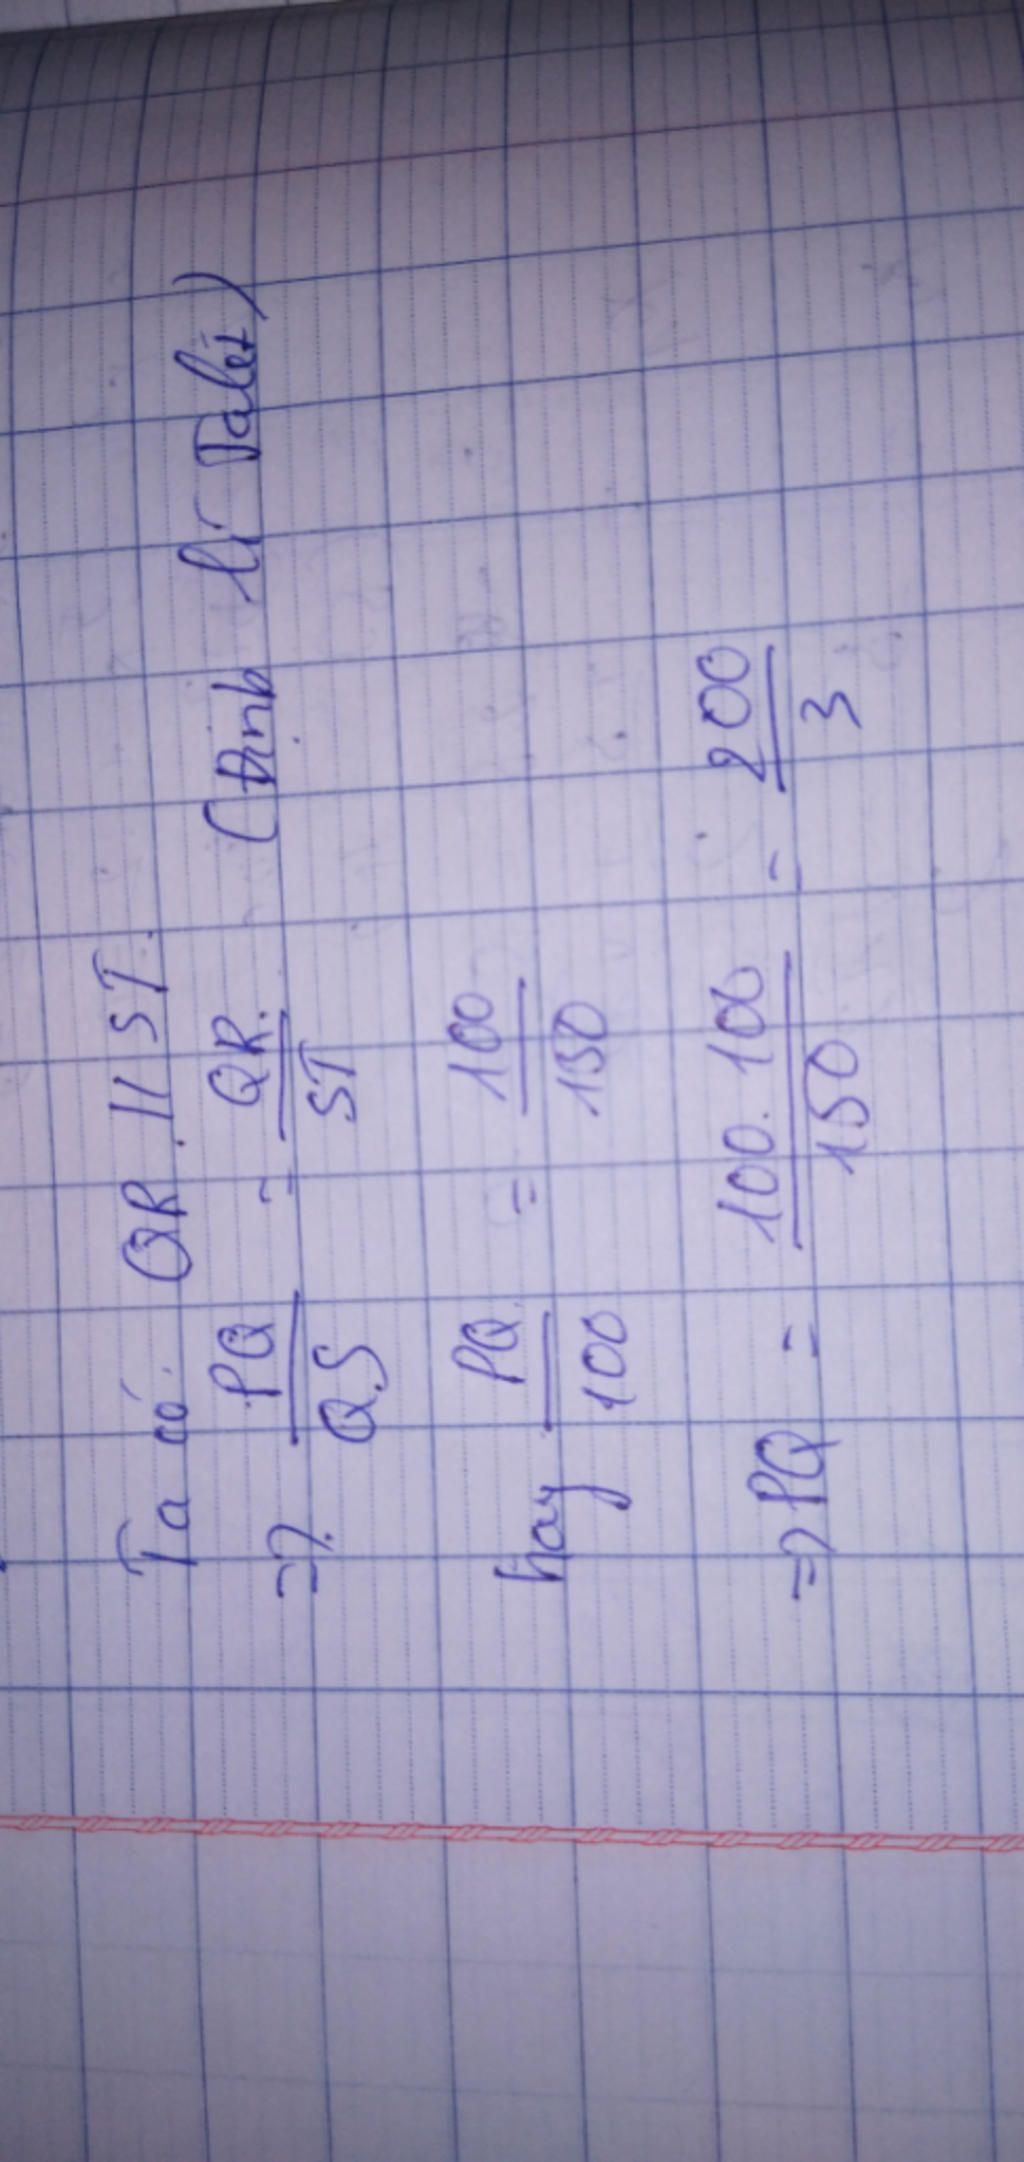 Ta có QR // ST
=> PQ/QS = QR/ST (Định lí Talét)
hay PQ/100 = 100/150
=> PQ = 100.100/150 = 200/3